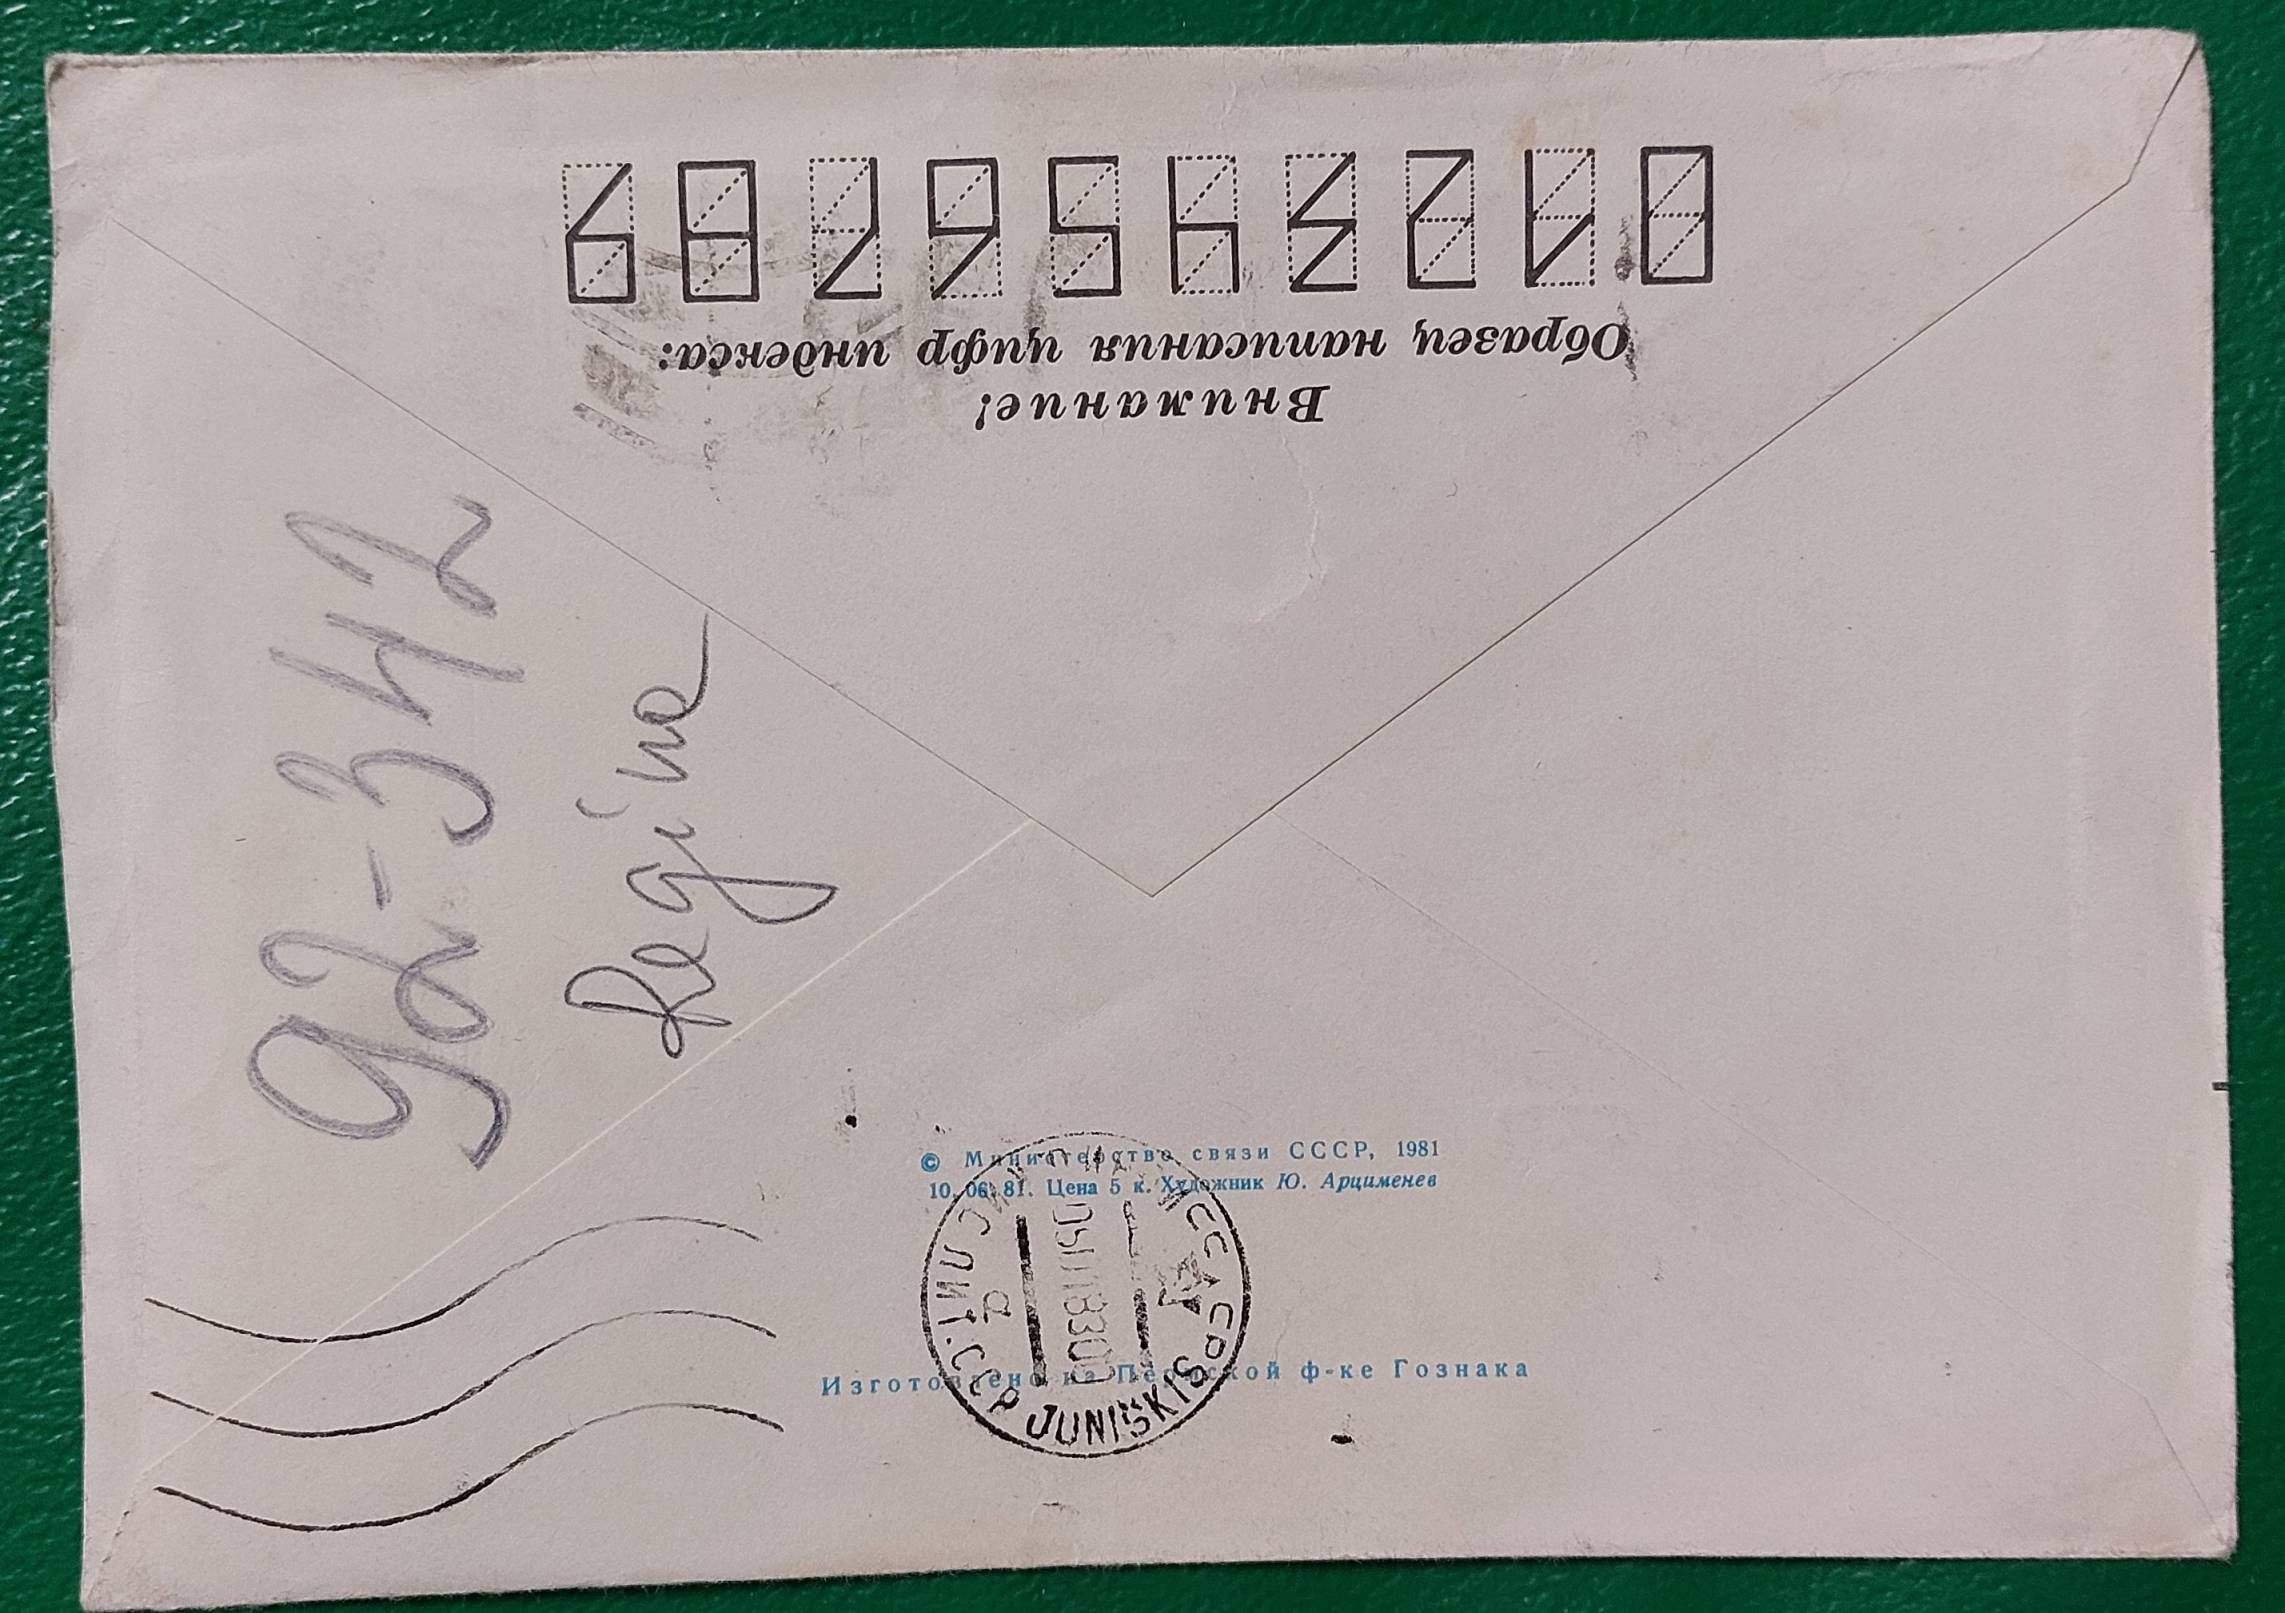 0 1 2 3 4 5 6 7 8 9
Образец написания цифр индекса:
Внимание!
92-342
Regina
© Министерство связи СССР, 1981
10.06.81. Цена 5 к. Художник Ю. Арцименев
Изготовлено на Пермской ф-ке Гознака
JUNIŠKIS